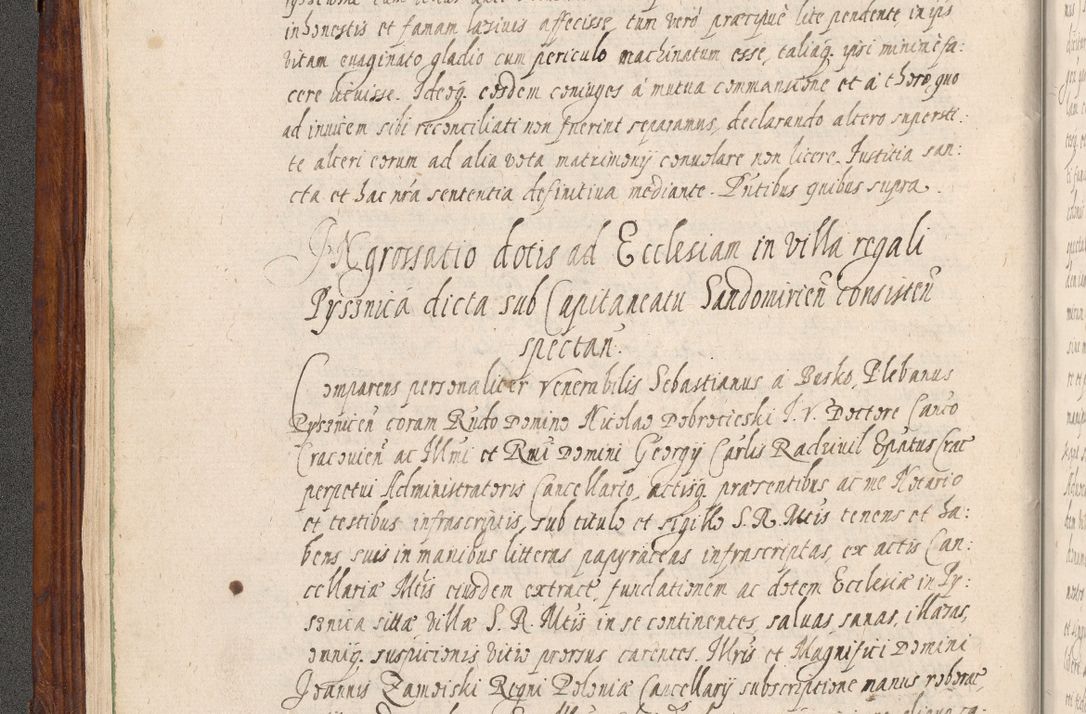 inhonestis et famam lasivis affecisse, tum verò præcipuè lite pendente in ips
vitam evaginato gladio cum periculo machinatum esse, taliaq. ipsi minimè fa:
cere licuisse. Ideoq. eosdem coniuges á mutua commansione et á thoro, quo
ad invicem sibi reconciliati non fuerint separamus, declarando altero supersti:
te alteri eorum ad alia vota matrimonij convolare non licere. Justitia san:
cta et hac nrã sententia definitiva mediante. Pñtibus quibus supra.
INgrossatio dotis ad Ecclesiam in villa regali
Pysznica dicta sub Capitaneatu Sandomirieñ consisteñ
spectañ.
Comparens personaliter Venerabilis Sebastianus á Busko, Plebanus
Pyszniceñ coram Rndo Domino Nicolao Dobrocieski I. V. Doctore Canco
Cracovieñ ac Illmi et Rmi Domini Georgij Carlis Radivivil Epiatus Crac
perpetui Administratoris Cancellario, actisq. præsentibus ac me Notario
et testibus infrascriptis, sub titulo et sigillo S. R. Mtis tenens et ha:
bens suis in manibus litteras papyraceas infrascriptas, ex actis Can:
cellariæ Mtis eiusdem extract, fundationem ac dotem Ecclesiæ in Py:
sznica sittæ villæ S. R. Mtis in se continentes, salvas, sanas, illæsas,
omniq. suspicionis vitio prorsus carentes. Illris et Magnifici Domini
Joannis Zamoiski Regni Poloniæ Cancellarij subscriptione manus roboratæ,